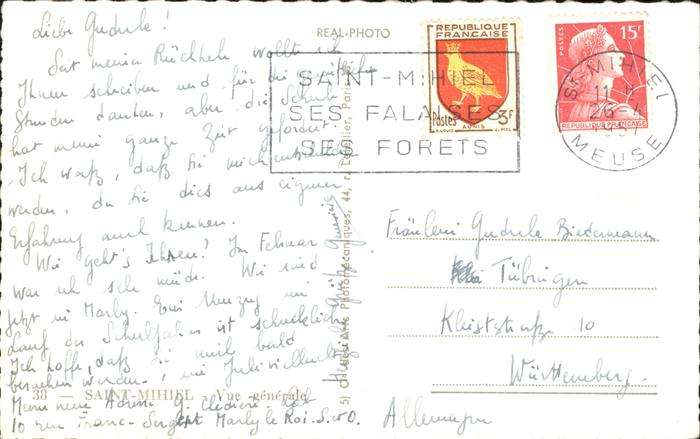 Liebe Gudrule!
Seit meiner Rückkehr wollte ich
Ihnen schreiben und für die
Stunden danken, aber die Schule
hat meine ganze Zeit gefordert.
Ich weiß, daß Sie mich
werden, da Sie dies aus eigener
Erfahrung auch kennen.
Wie geht's Ihnen? Im Februar
war ich sehr müde. Wir sind
jetzt in Marly. Ein Umzug im
Lauf des Schuljahrs ist schrecklich
Ich hoffe, daß Sie mich bald
besuchen werden, im Juli vielleicht
Meine neue Adresse
10 rue Franc. Sergent Marly le Roi. S. & O.
REAL-PHOTO
38 — SAINT-MIHIEL - Vue générale
Arts Photomécaniques, 44, Paris
REPUBLIQUE
FRANÇAISE
Postes 3F
AUNIS
POSTES 15F
REPUBLIQUE FRANÇAISE
SAINT-MIHIEL
SES FALAISES
SES FORETS
ST MIHIEL
MEUSE
Fräulein Gudrule Biedermann
Tübingen
Kleiststraße 10
Württemberg.
Allemagne